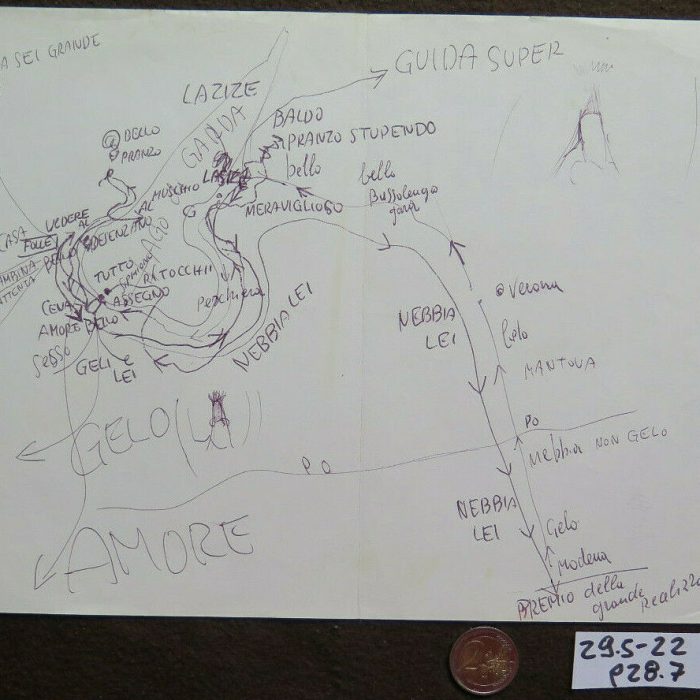 A SEI GRANDE
GUIDA SUPER
LAZIZE
GARDA
BALDO
PRANZO STUPENDO
bello
@ BELLO
PRANZO
LAZISE
MERAVIGLIOSO
bello
Bussolengo
AL
CASA
FOLLE
VEDERE
AL
BELLO
DESENZANO
LAGO
G
BAMBINA
ATTENTA
TUTTO
RATOCCHII
ASSEGNO
CENA
AMORE BELLO
SESSO
Peschiera
GELI e
LEI
NEBBIA LEI
NEBBIA
LEI
Verona
Gelo
MANTOVA
PO
Nebbia NON GELO
GELO
PO
NEBBIA
LEI
Gelo
Modena
AMORE
PREMIO della
grande Realizza
29.5-22
P28.7